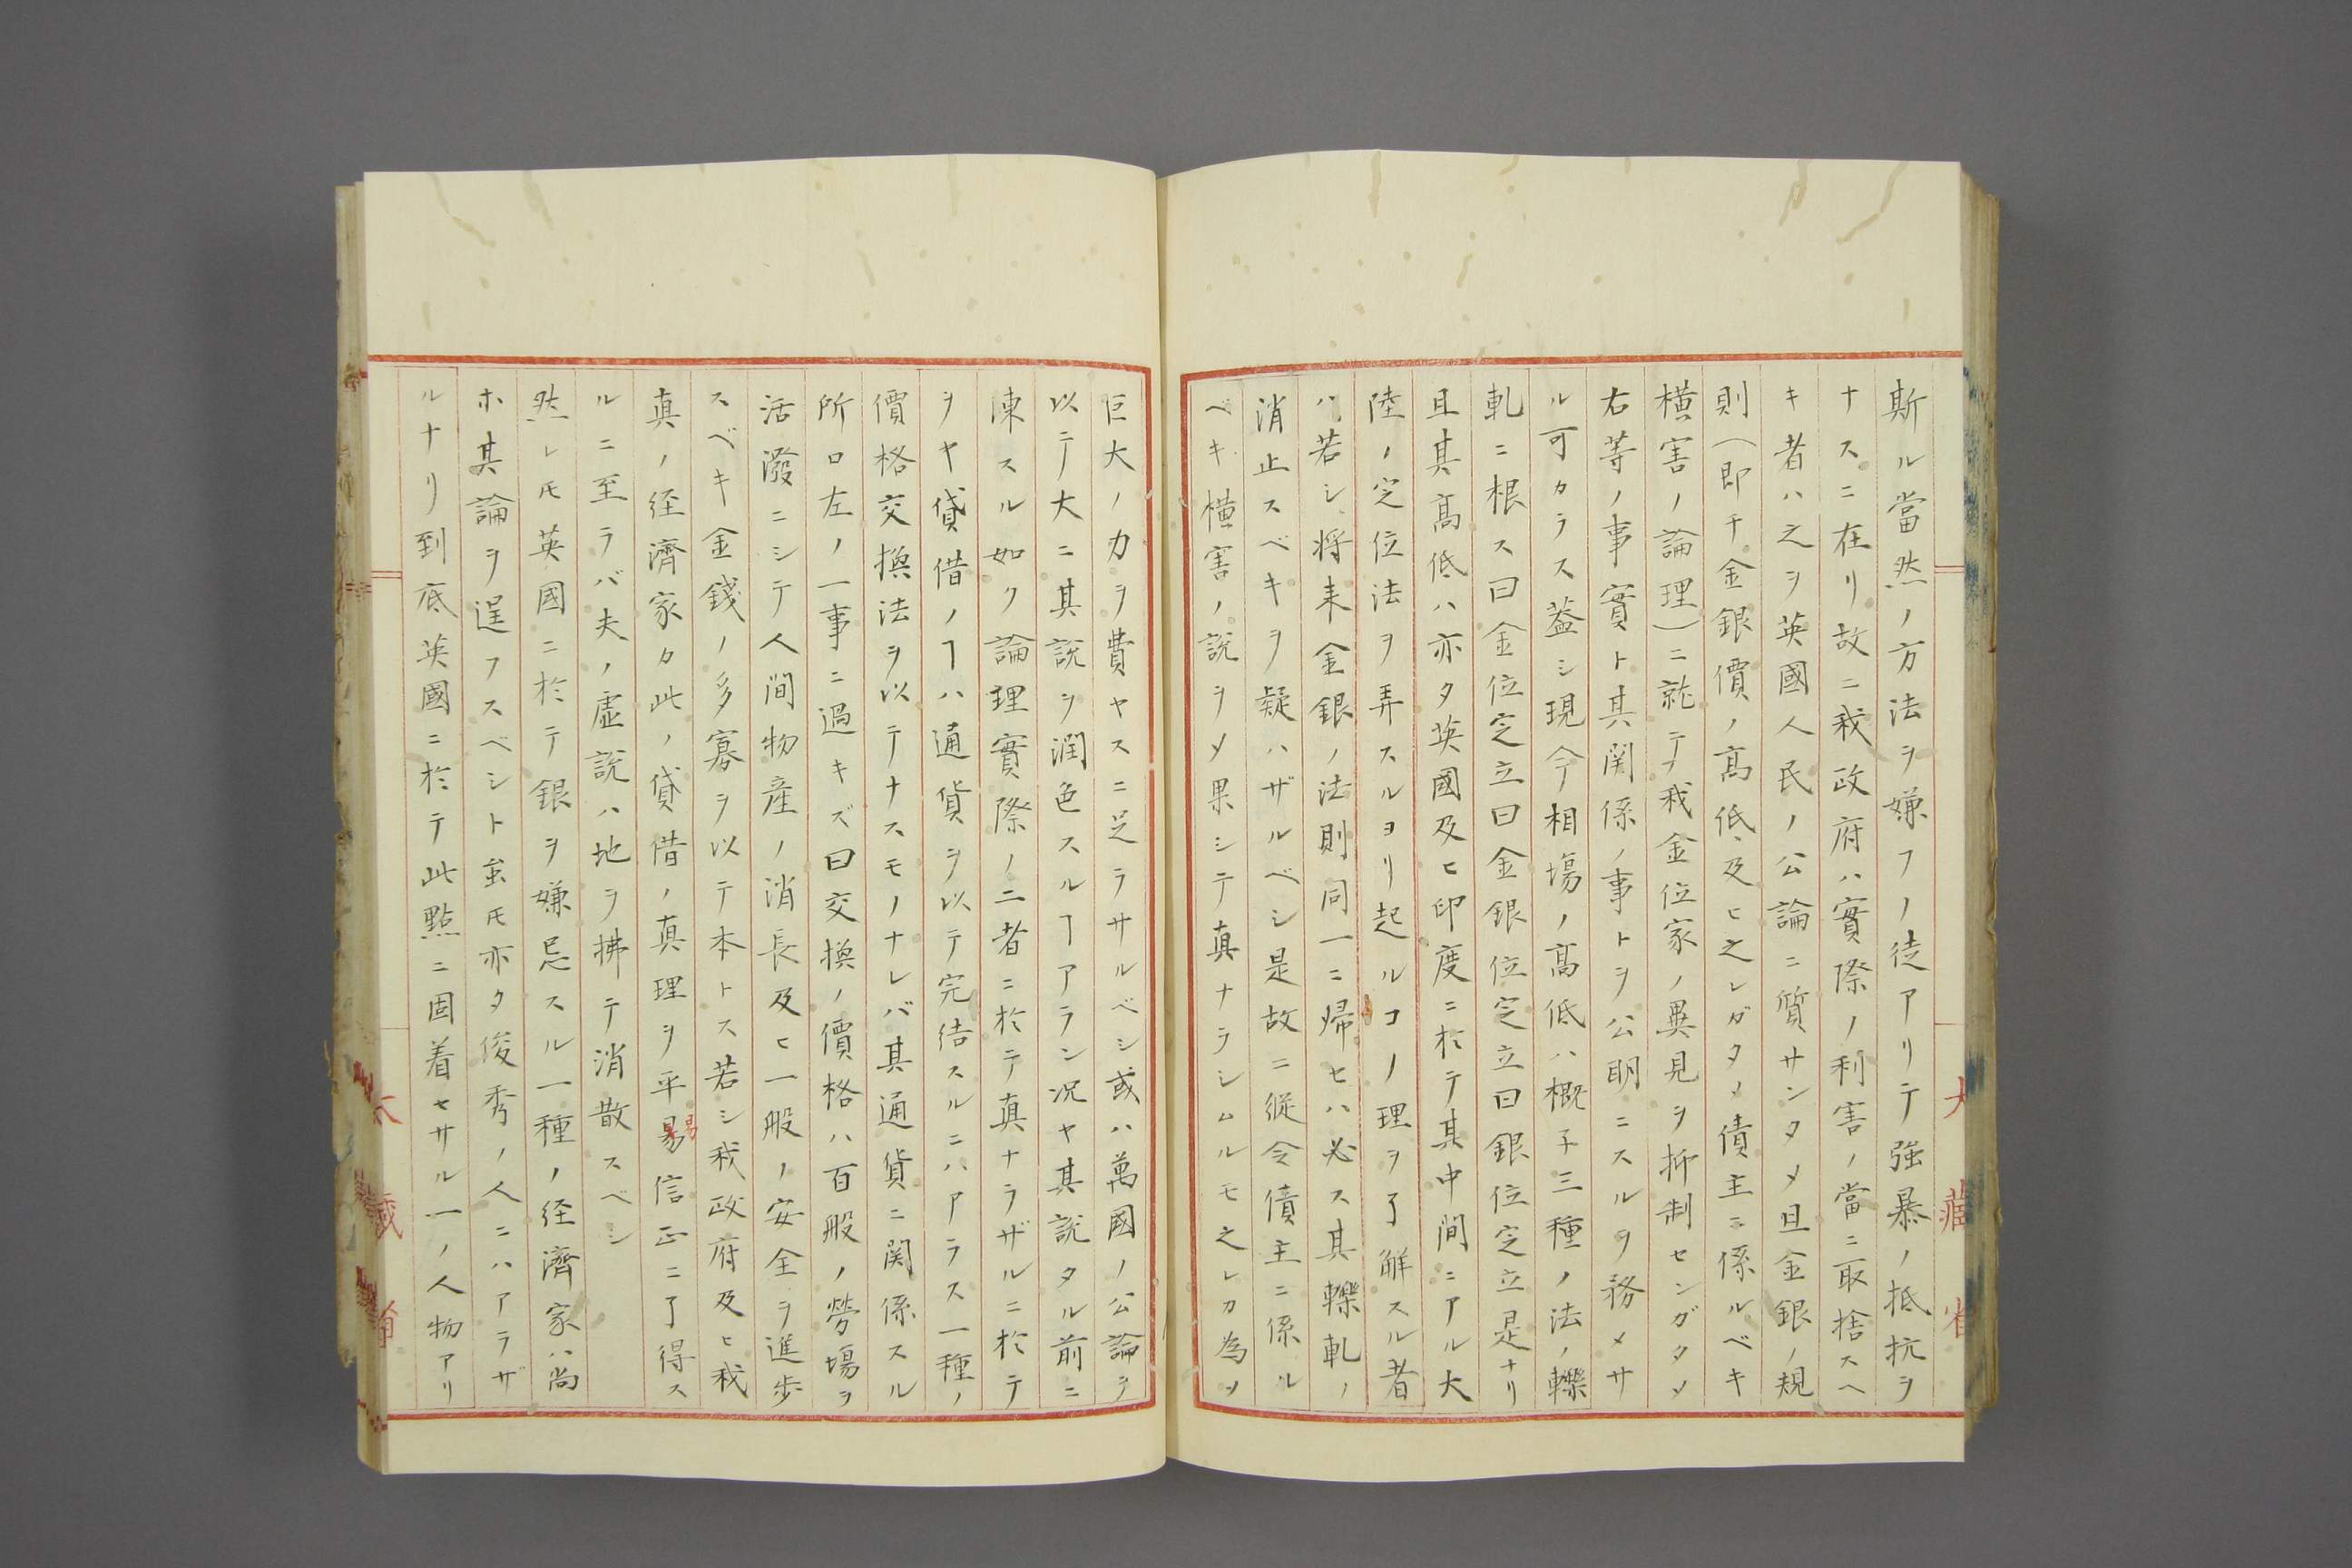 斯ル當然ノ方法ヲ嫌フノ徒アリテ強暴ノ抵抗ヲ
ナスニ在リ故ニ我政府ハ實際ノ利害ノ當ニ取捨スヘ
キ者ハ之ヲ英國人民ノ公論ニ質サンタメ且金銀ノ規
則(即チ金銀價ノ高低及ヒ之レガタメ債主ニ係ルベキ
横害ノ論理)ニ就テ我金位家ノ異見ヲ抑制センガタメ
右等ノ事實ト其関係ノ事トヲ公明ニスルヲ務メサ
ル可カラス蓋シ現今相塲ノ高低ハ概子三種ノ法ノ轢
軋ニ根ス曰金位定立曰金銀位定立曰銀位定立是ナリ
且其高低ハ亦タ英國及ヒ印度ニ於テ其中間ニアル大
陸ノ定位法ヲ弄スルヨリ起ルコノ理ヲ了解スル者
ハ若シ将来金銀ノ法則同一ニ帰セハ必ス其轢軋ノ
消止スベキヲ疑ハザルベシ是故ニ縦令債主ニ係ル
ベキ横害ノ説ヲメ果シテ真ナラシムルモ之レカ為メ
巨大ノ力ヲ費ヤスニ足ラサルベシ或ハ萬國ノ公論ヲ
以テ大ニ其説ヲ潤色スルヿアラン况ヤ其説タル前ニ
陳スル如ク論理實際ノ二者ニ於テ真ナラザルニ於テ
ヲヤ貸借ノヿハ通貨ヲ以テ完結スルニハアラス一種ノ
價格交換法ヲ以テナスモノナレバ其通貨ニ関係スル
所ロ左ノ一事ニ過キズ曰交換ノ價格ハ百般ノ勞塲ヲ
活潑ニシテ人間物産ノ消長及ヒ一般ノ安全ヲ進歩
スベキ金錢ノ多寡ヲ以テ本トス若シ我政府及ヒ我
真ノ経濟家カ此ノ貸借ノ真理ヲ平易信正ニ了得ス
ルニ至ラバ夫ノ虚説ハ地ヲ拂テ消散スベシ
然レ𪜈英國ニ於テ銀ヲ嫌忌スル一種ノ経濟家ハ尚
ホ其論ヲ逞フスベシト䖝𪜈亦タ俊秀ノ人ニハアラザ
ルナリ到底英國ニ於テ此點ニ固着セサル一ノ人物アリ
大藏省